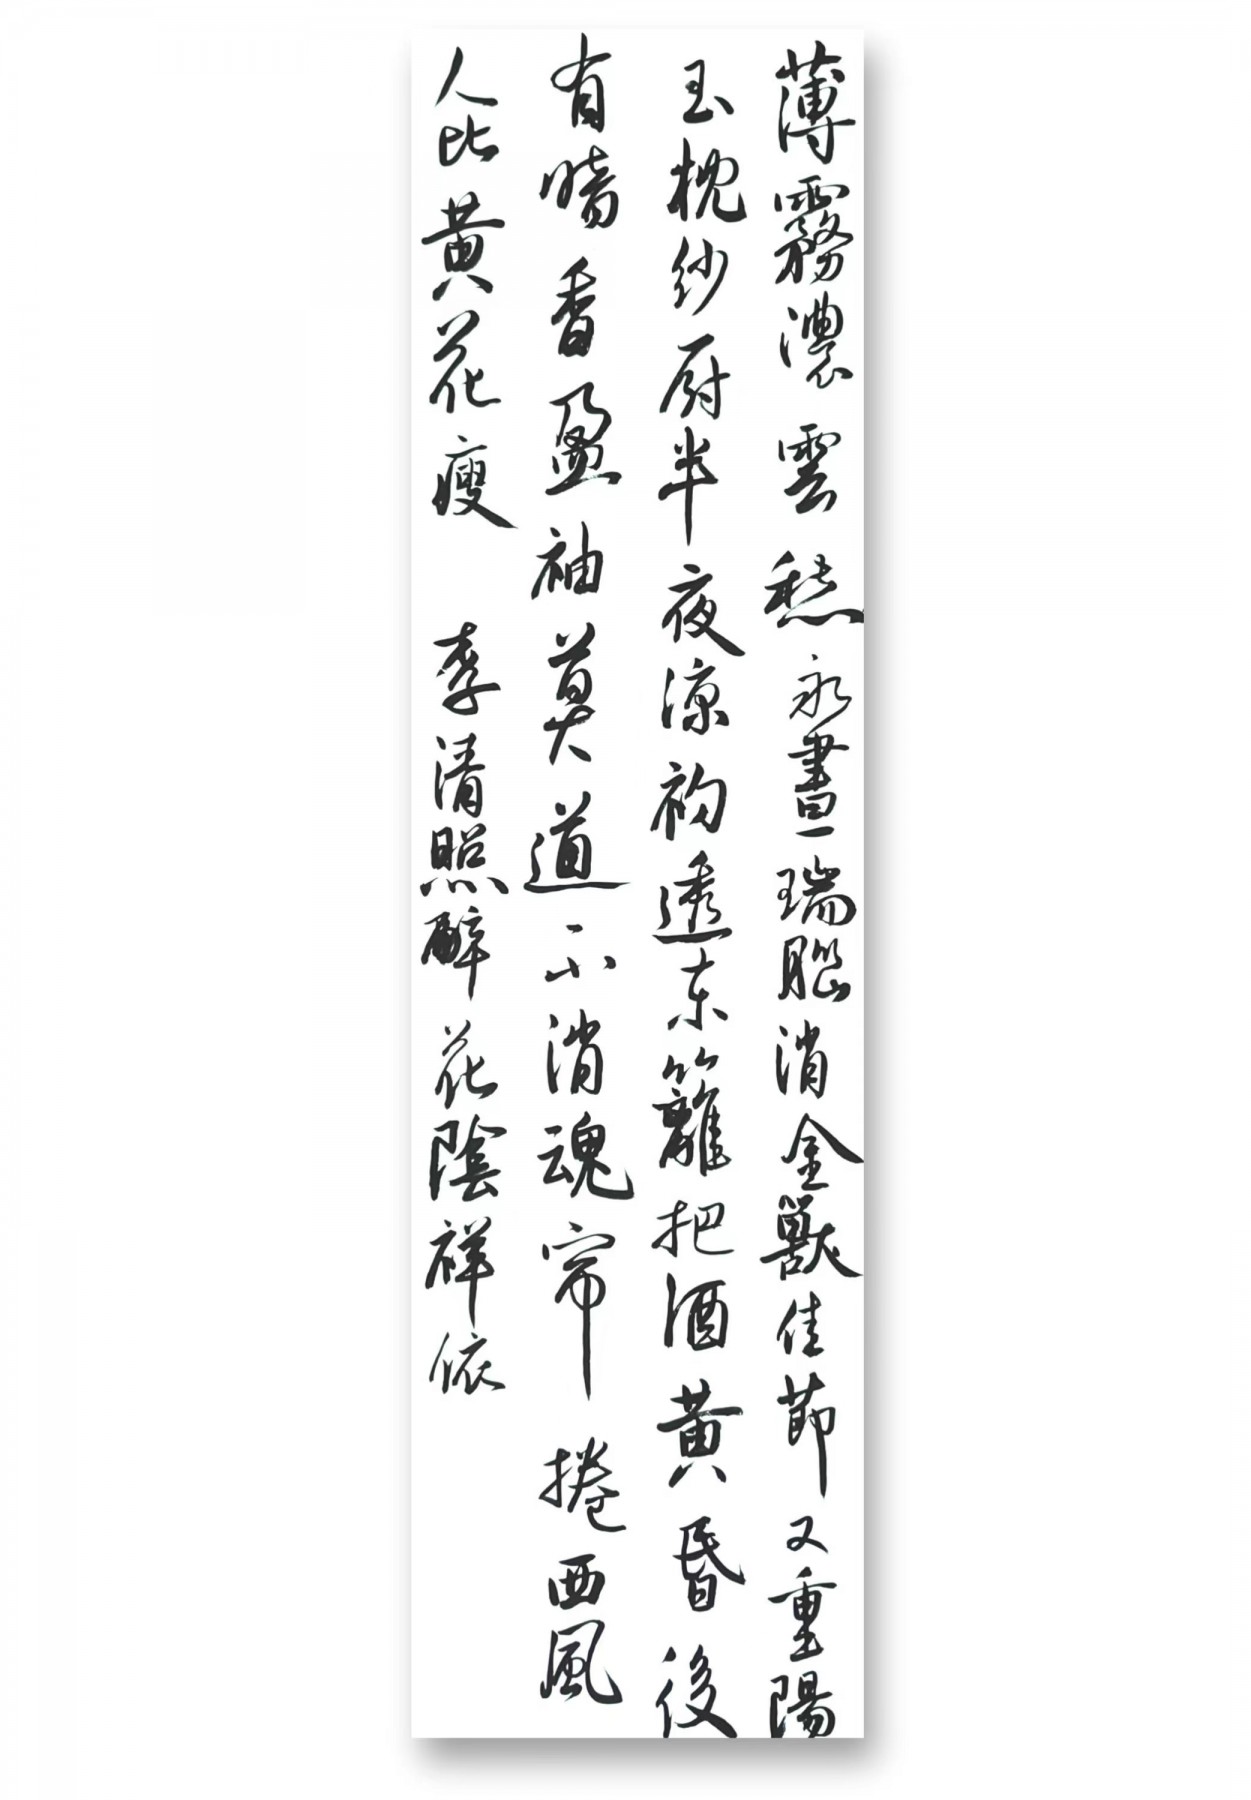 薄霧濃雲愁永晝瑞腦消金獸佳節又重陽
玉枕紗厨半夜涼初透東籬把酒黄昏後
有暗香盈袖莫道不消魂帘捲西風
人比黄花瘦 李清照醉花陰祥依